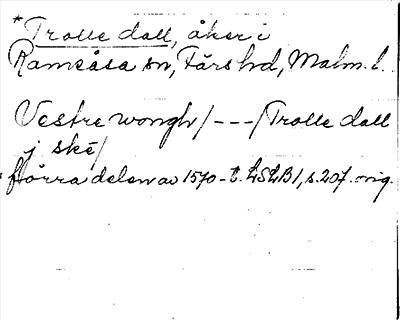 *Trolle dall, åker i
Ramsåsa sn, Färs hd, Malm. l.
Vestre wongh/ - - - /Trolle dall
j skë/
förra delen av 1570-t. LSLB1, s. 207. orig.